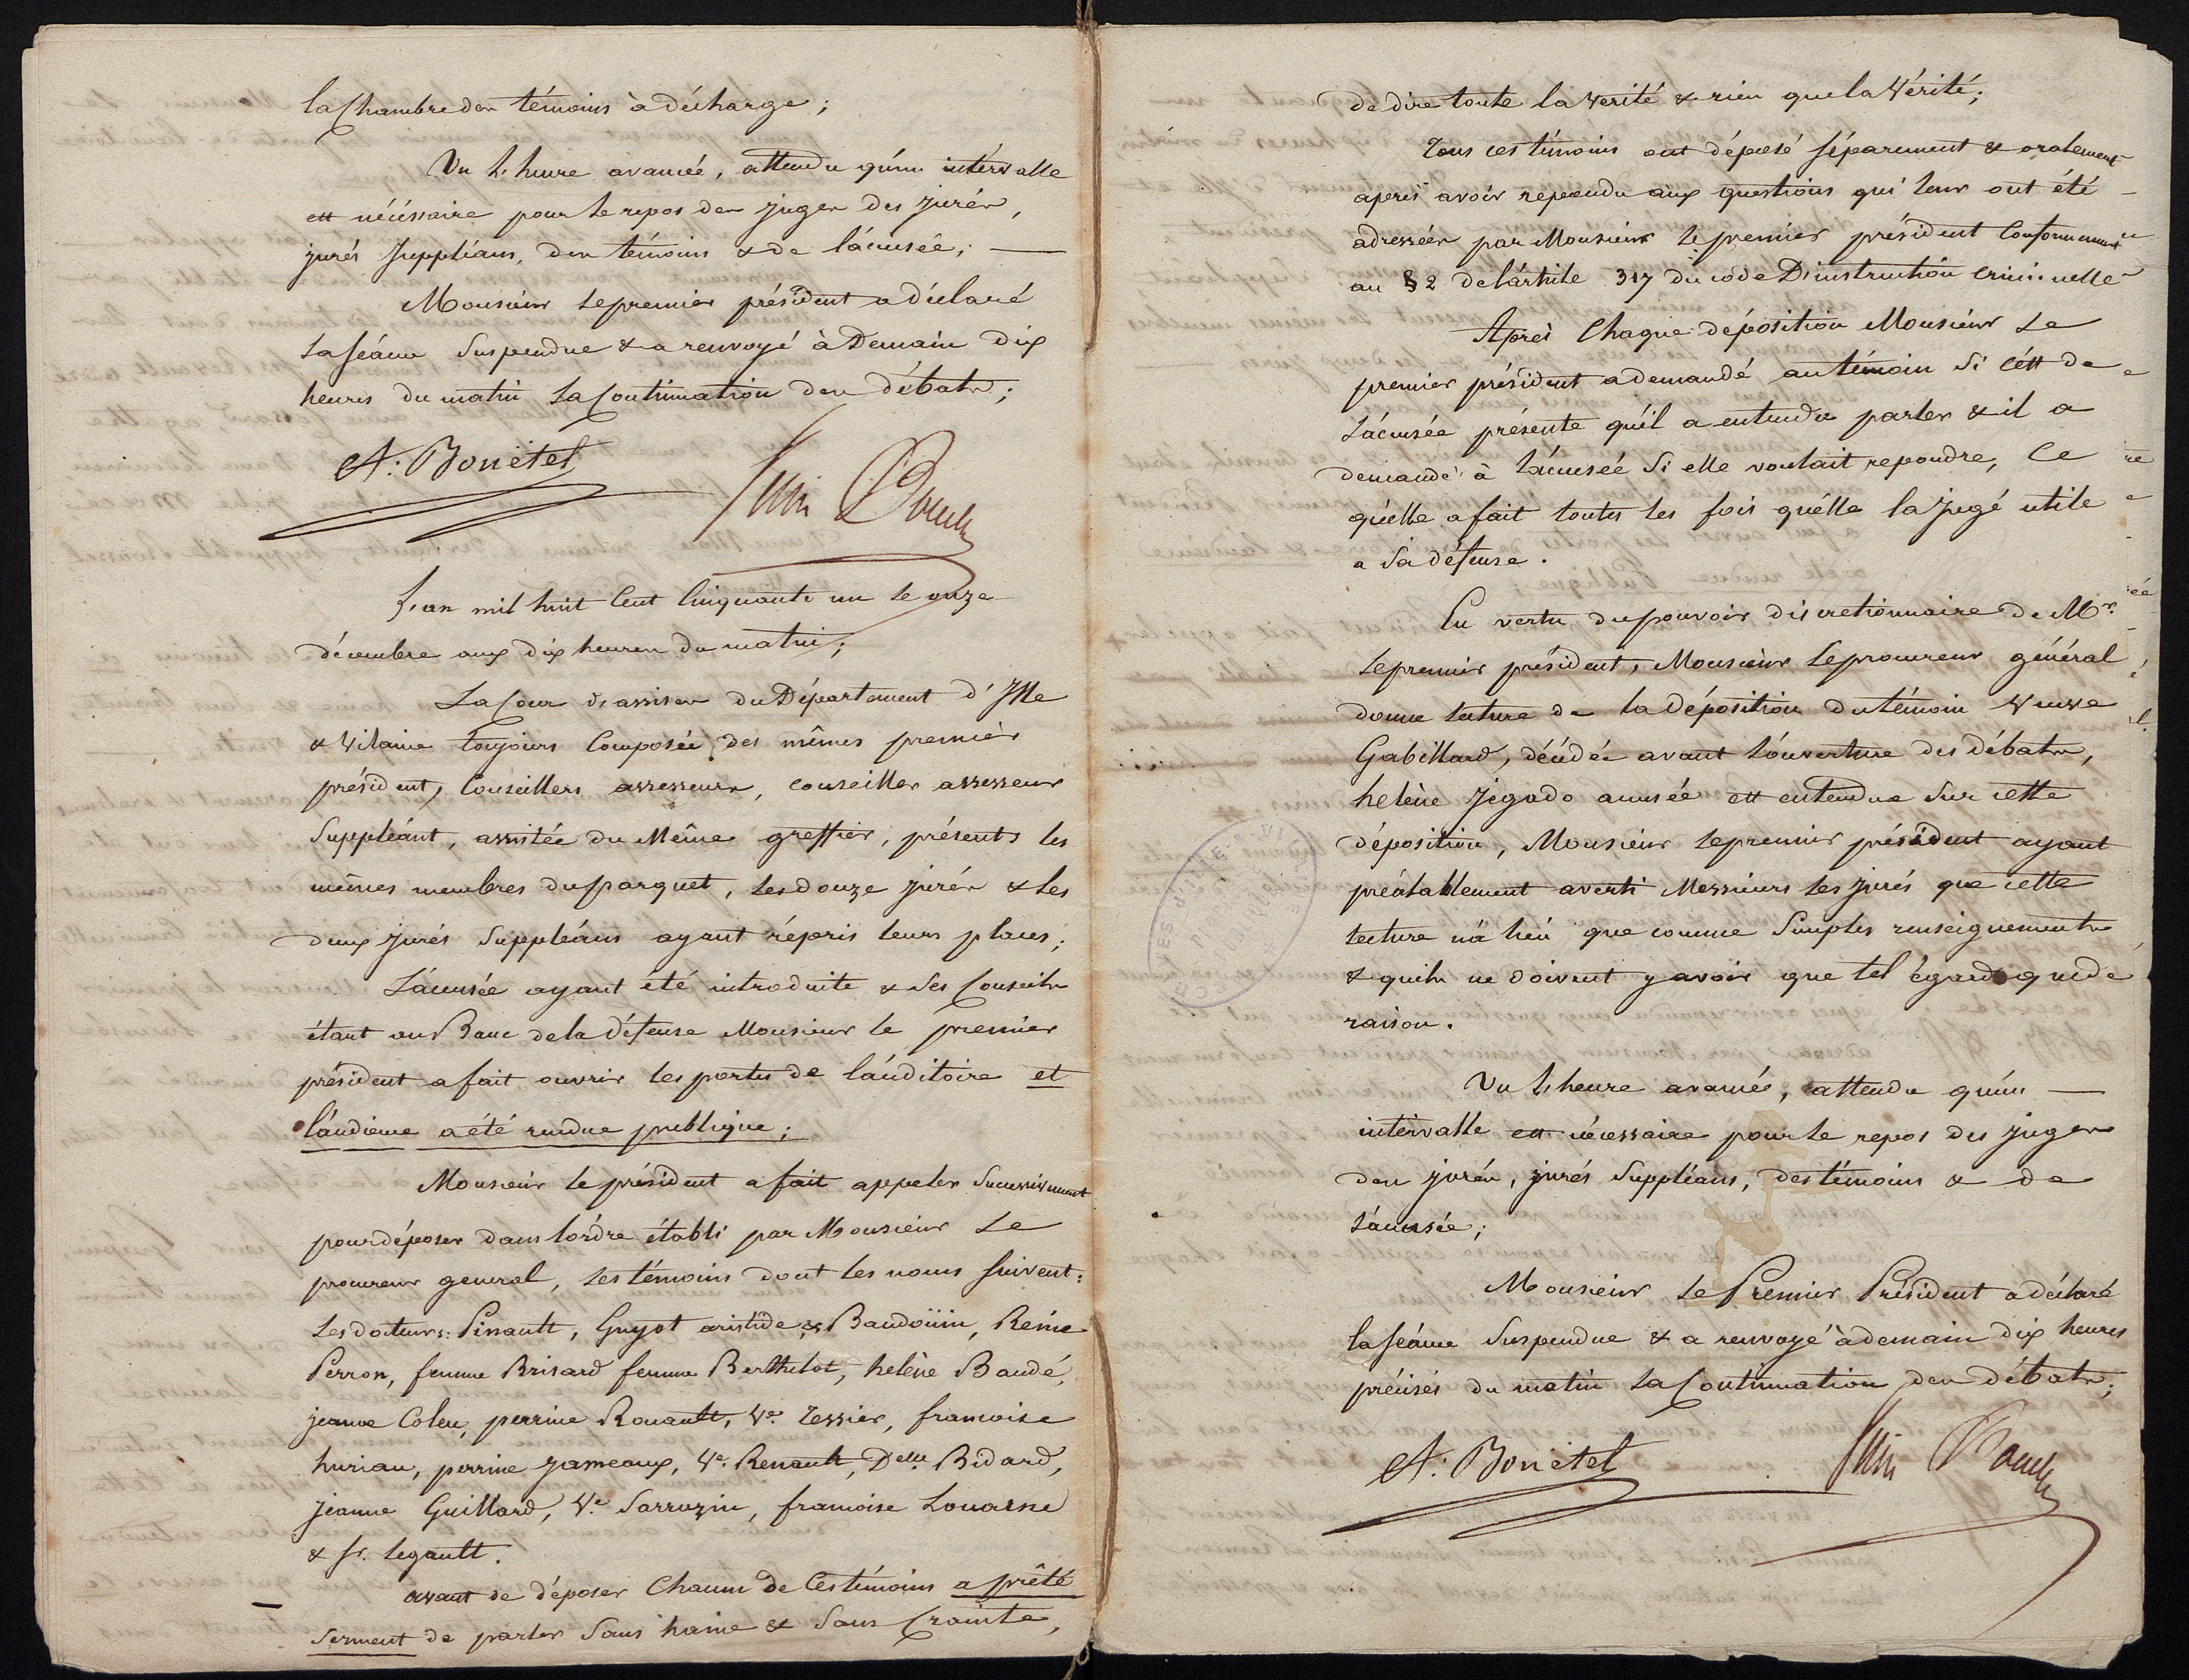 la Chambre des témoins à décharge;
Vu l'heure avancée, attendu qu'un intervalle
est nécéssaire pour le repos des juges des jurés,
jurés suppléans, des témoins & de l'accusée;
Monsieur le premier président a déclaré
la séance suspendue & a renvoyé à Demain dix
heures du matin la Continuation des débats;
A: Bonétel
L'an mil huit Cent Cinquante un le onze
décembre aux dix heures du matin;
La Cour d'assises du Département d'Ille
& Vilaine toujours Composée des mêmes premier
président, Conseillers assesseurs, conseiller assesseur
Suppléant, assistée du Même greffier, présents les
mêmes membres du parquet, les douze jurés & les
deux jurés Suppléans ayant répris leurs places;
L'accusée ayant été introduite & Ses Conseils
étant au Banc de la défense Monsieur le premier
président a fait ouvrir les portes de l'auditoire et
l'audience a été rendue publique;
Monsieur le président a fait appeler Successivement
pour déposer dans l'ordre établi par Monsieur Le
procureur general, les témoins dont les noms Suivent:
Les docteurs: Pinault, Guyot aristide, & Baudoüin, Reine
Perron, femme Brisard femme Berthelot, heléne Baudé,
jeanne Coleu, perrine Rouault, Ve. Tessier, francoise
huriau, perrine jameaux, Ve. Renault, Delle Bidard,
jeanne Guillard, Ve Sarrazin, francoise Louarne
& fs. legault.
avant de déposer Chacun de Ces témoins a prêté
Serment de parler Sans haine & Sans Crainte,
de dire toute la verité & rien que la Vérité;
Tous ces témoins ont déposé séparement & oralement
après avoir repondu aux questions qui leur ont été
adressées par Monsieur le premier président Conformement
au § 2 de l'article 317 du code D'instruction Criminelle
Après Chaque déposition Monsieur Le
premier président a demandé au témoin Si c'est de
L'accusée présente qu'il a entendu parler & il a
demandé à l'accusée Si elle voulait repondre, Ce
qu'elle a fait toutes les fois qu'elle la jugé utile
a Sa défense.
En vertu du pouvoir discretionnaire de Mr.
le premier président, Monsieur le procureur général
donne lecture de la déposition du témoin Veuve
Gabillard, décédée avant l'ouverture des débats,
heléne Jegado accusée est entendue Sur cette
déposition, Monsieur le premier président ayant
préalablement averti Messieurs les jurés que cette
lecture n'a lieu que comme Simples renseignements
& quils ne doivent y avoir que tel égard que de
raison.
Vu l'heure avancée, attendu qu'un
intervalle est nécessaire pour le repos des juges
des jurés, jurés Suppléans, des témoins & de
l'accusée;
Monsieur Le Premier Président a déclaré
la séance Suspendue & a renvoyé à demain dix heures
précises du matin la Continuation des débats;
A: Bonétel